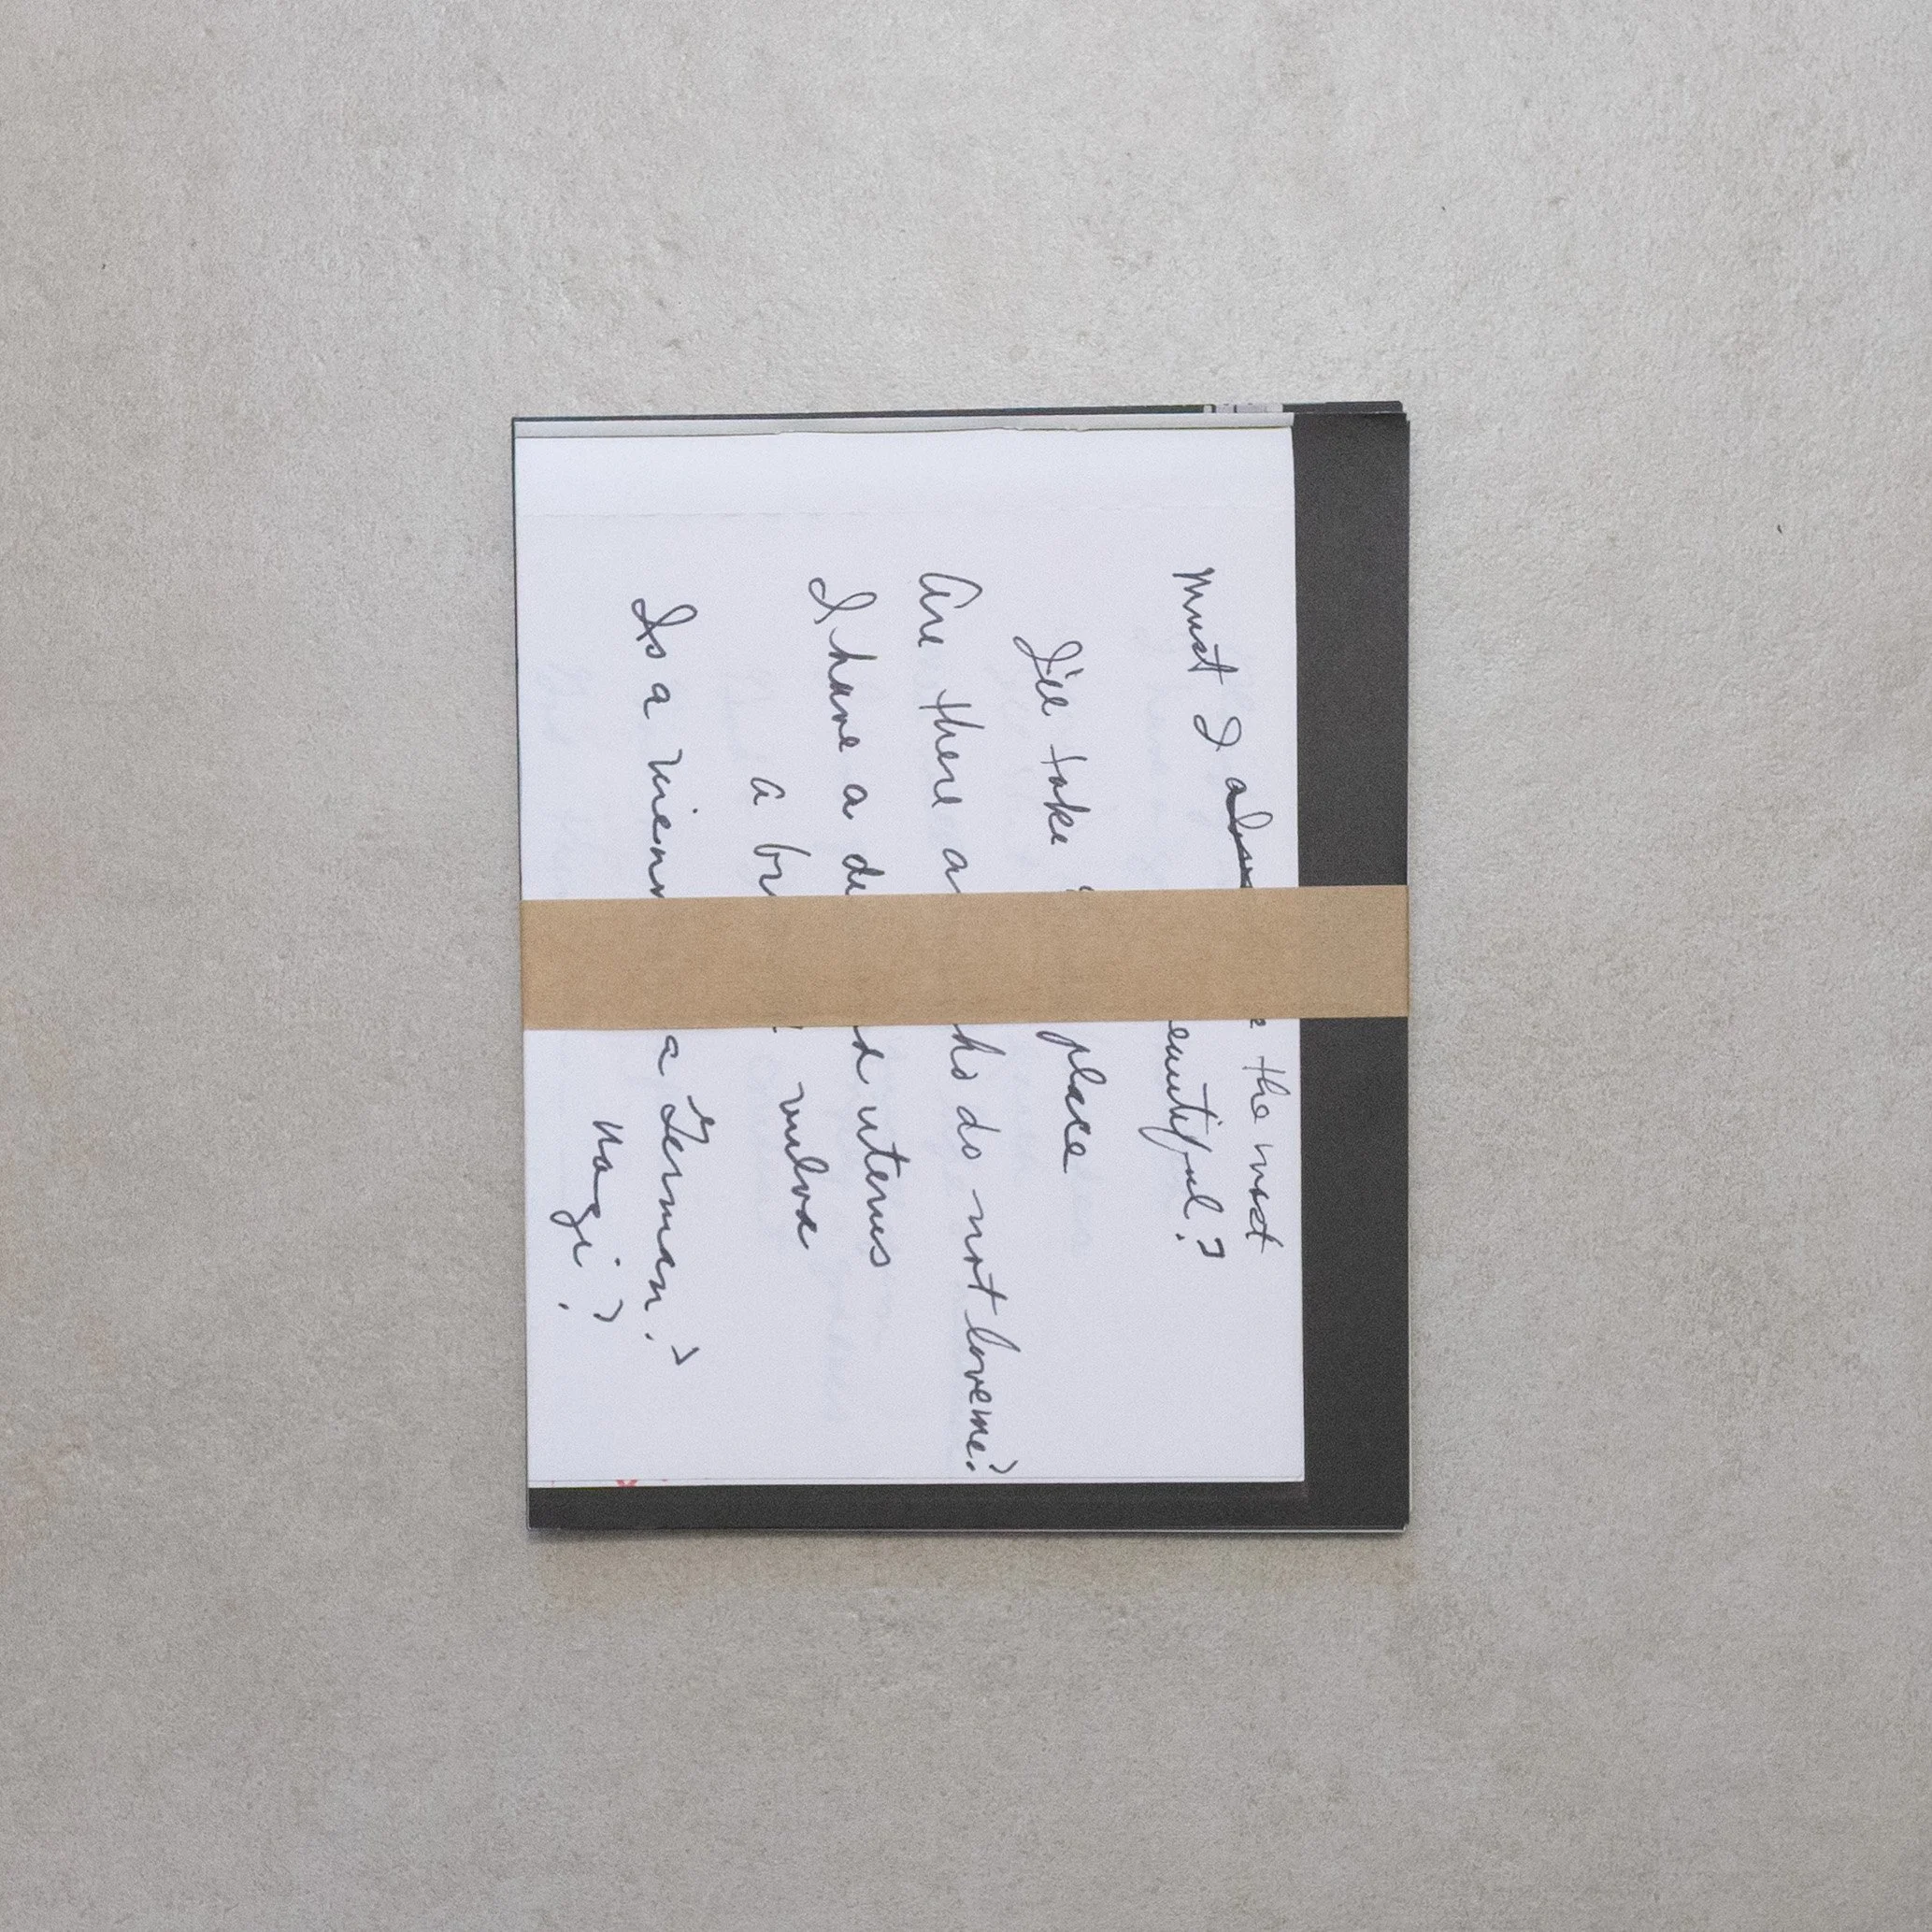 Must I the most
eautiful?
I'll take place
Are there a ho do not love me?
I have a de d uterus
a br vulva
Is a vienn a German?
Nazi?